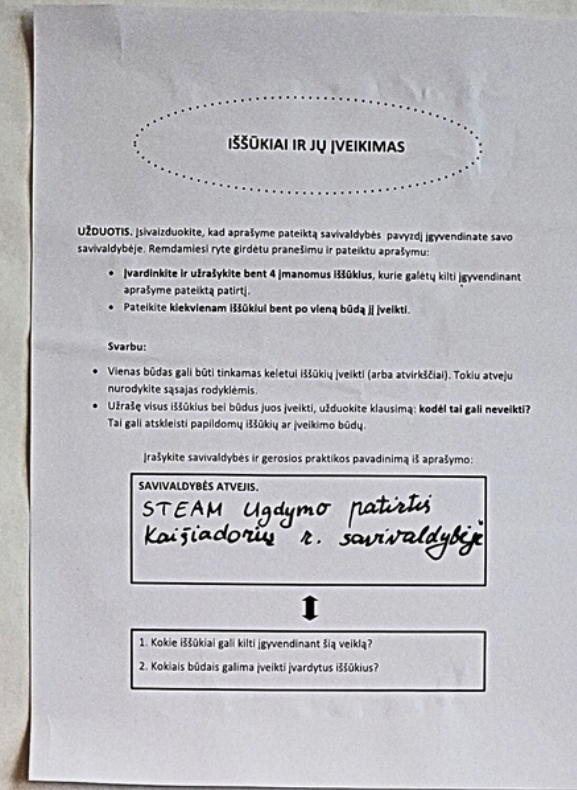 IŠŠŪKIAI IR JŲ ĮVEIKIMAS
UŽDUOTIS. Įsivaizduokite, kad aprašyme pateiktą savivaldybės pavyzdį įgyvendinate savo
savivaldybėje. Remdamiesi ryte girdėtu pranešimu ir pateiktu aprašymu:
• Įvardinkite ir užrašykite bent 4 įmanomus iššūkius, kurie galėtų kilti įgyvendinant
aprašyme pateiktą patirtį.
• Pateikite kiekvienam iššūkiui bent po vieną būdą jį įveikti.
Svarbu:
• Vienas būdas gali būti tinkamas keletui iššūkių įveikti (arba atvirkščiai). Tokiu atveju
nurodykite sąsajas rodyklėmis.
• Užrašę visus iššūkius bei būdus juos įveikti, užduokite klausimą: kodėl tai gali neveikti?
Tai gali atskleisti papildomų iššūkių ar įveikimo būdų.
Įrašykite savivaldybės ir gerosios praktikos pavadinimą iš aprašymo:
SAVIVALDYBĖS ATVEJIS.
STEAM Ugdymo patirtis
Kaišiadorių r. savivaldybėje
1. Kokie iššūkiai gali kilti įgyvendinant šią veiklą?
2. Kokiais būdais galima įveikti įvardytus iššūkius?